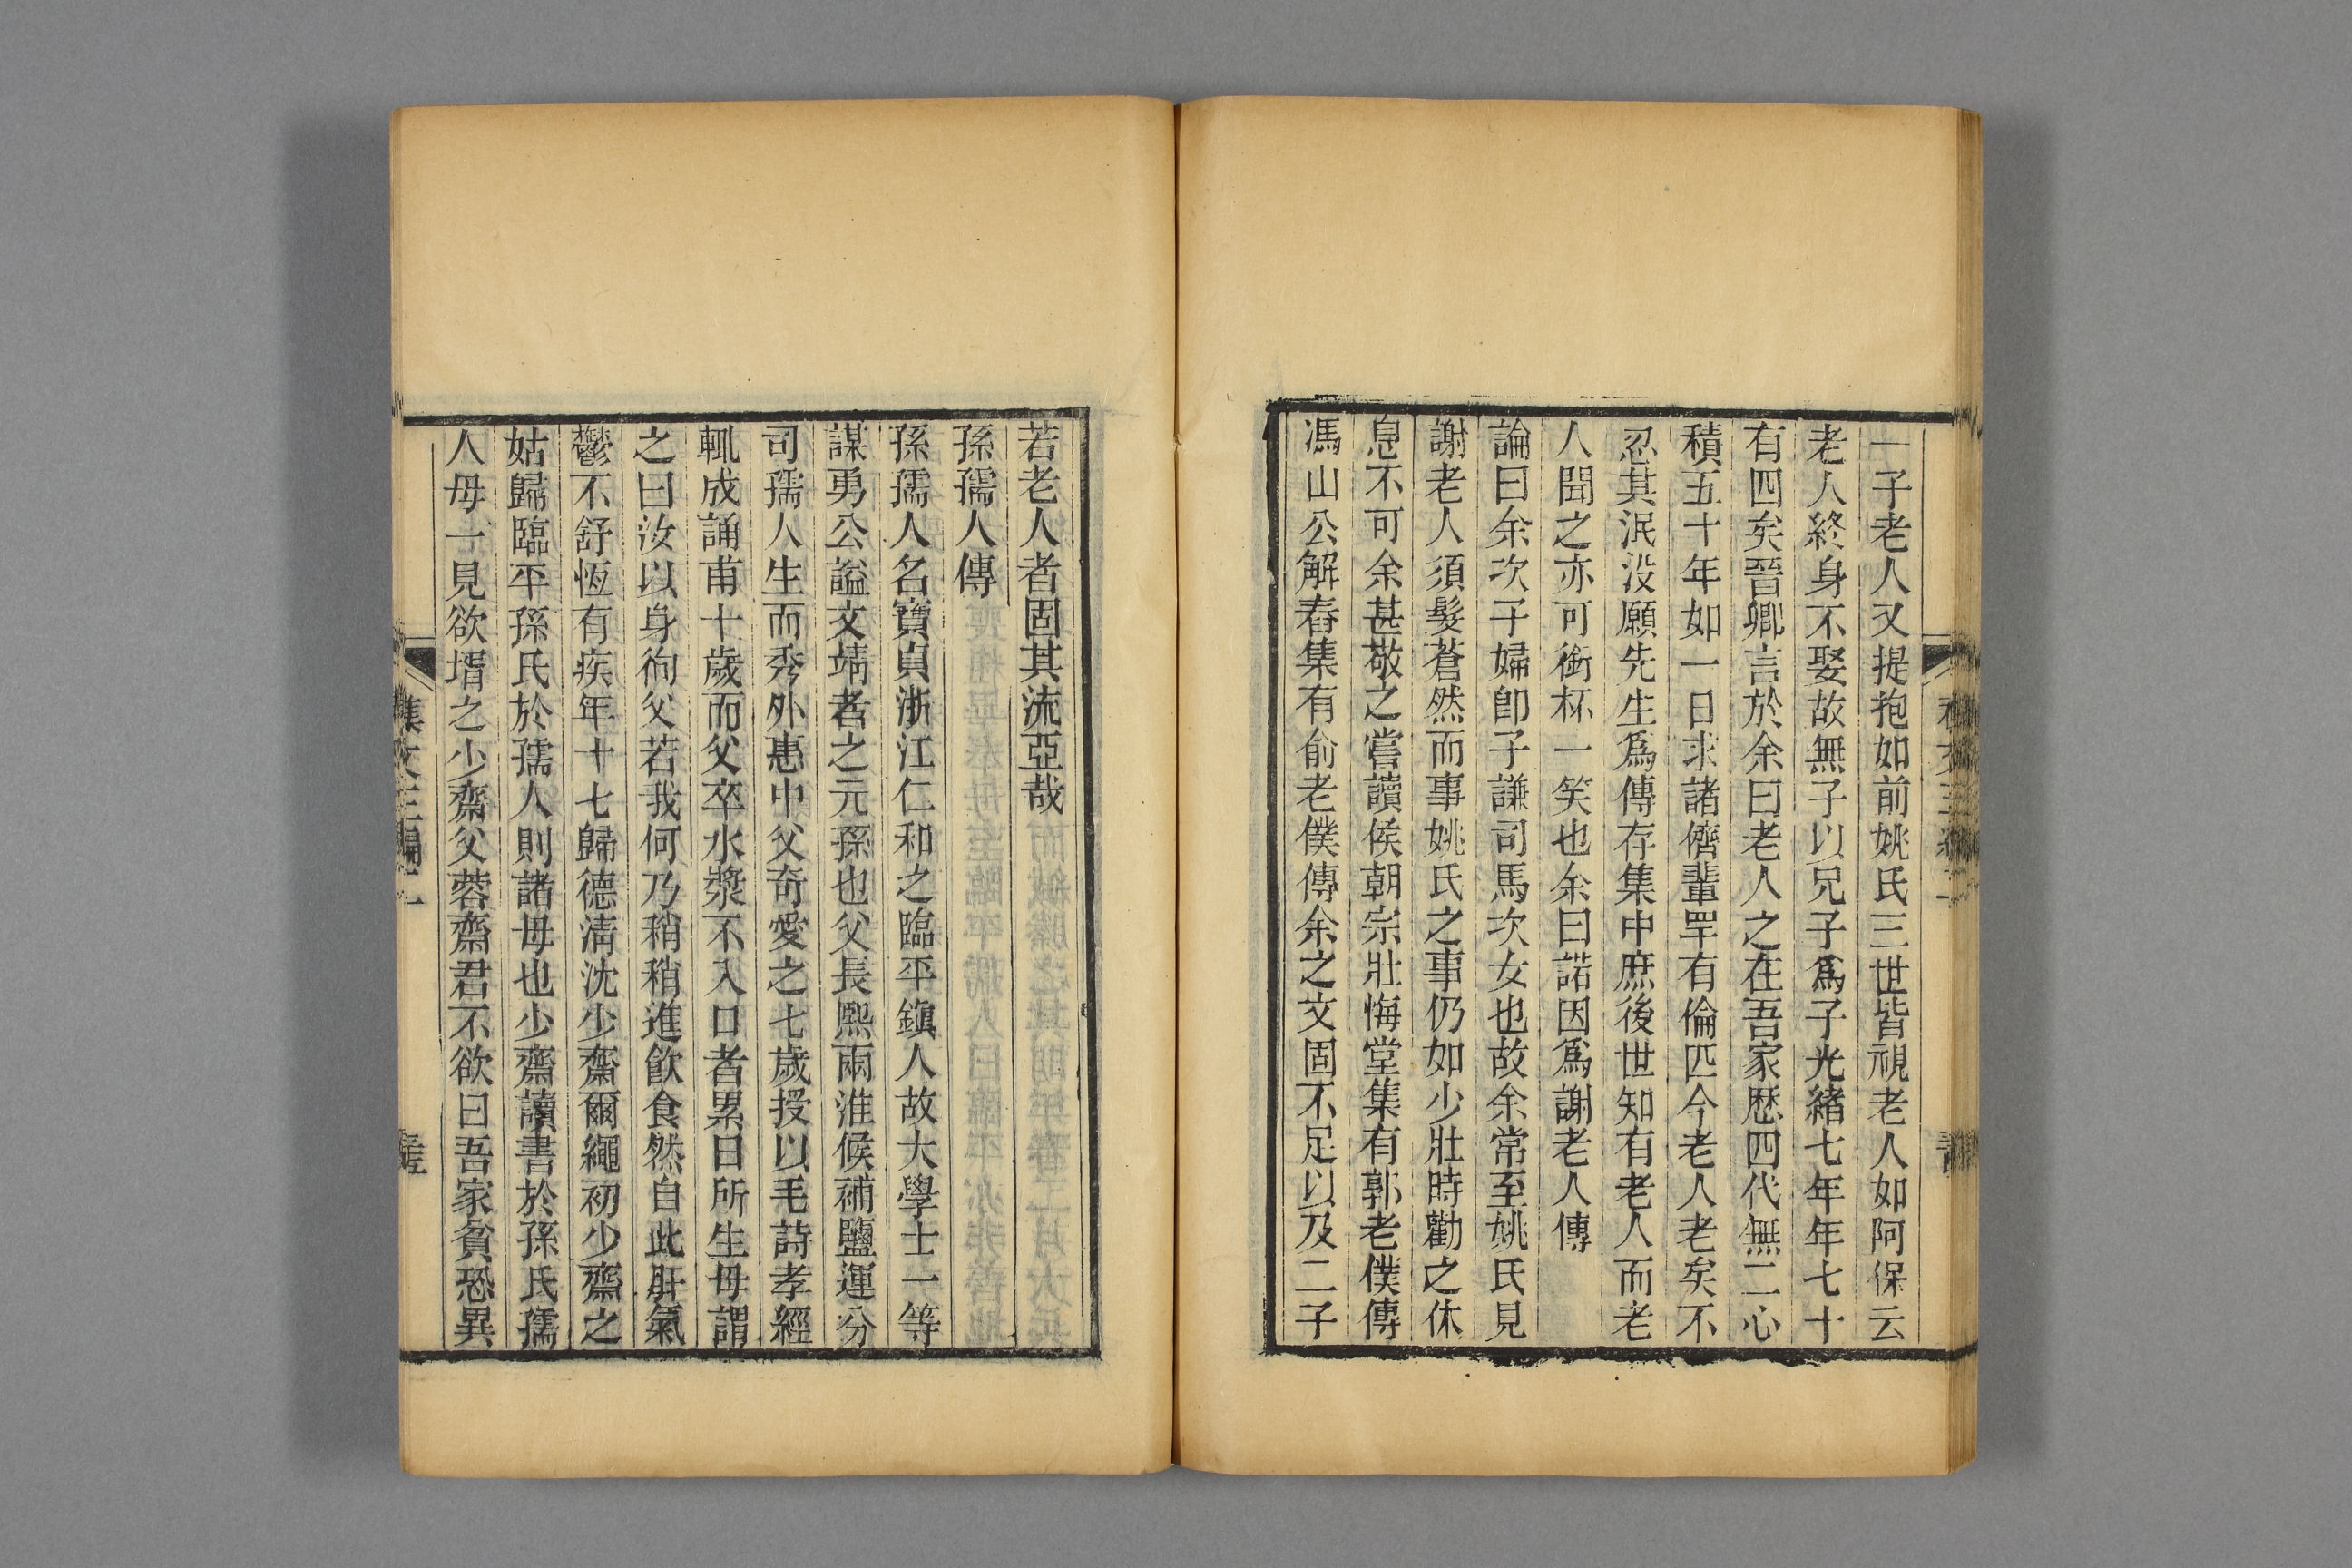 一子老人又提抱如前姚氏三世皆視老人如阿保云
老人終身不娶故無子以兄子爲子光緒七年年七十
有四矣晉卿言於余曰老人之在吾家歷四代無二心
積五十年如一日求諸儕輩罕有倫匹今老人老矣不
忍其泯没願先生爲傳存集中庶後世知有老人而老
人聞之亦可銜杯一笑也余曰諾因爲謝老人傳
論曰余次子婦卽子謙司馬次女也故余常至姚氏見
謝老人須髮蒼然而事姚氏之事仍如少壯時勸之休
息不可余甚敬之嘗讀侯朝宗壯悔堂集有郭老僕傳
馮山公解舂集有俞老僕傳余之文固不足以及二子
若老人者固其流亞哉
孫孺人傳
孫孺人名寶貞浙江仁和之臨平鎭人故大學士一等
謀勇公謚文靖者之元孫也父長熙兩淮候補鹽運分
司孺人生而秀外惠中父奇愛之七歲授以毛詩孝經
輒成誦甫十歲而父卒水漿不入口者累日所生母謂
之曰汝以身徇父若我何乃稍稍進飮食然自此肝氣
鬱不舒恆有疾年十七歸德淸沈少齋爾繩初少齋之
姑歸臨平孫氏於孺人則諸母也少齋讀書於孫氏孺
人母一見欲壻之少齋父蓉齋君不欲曰吾家貧恐異